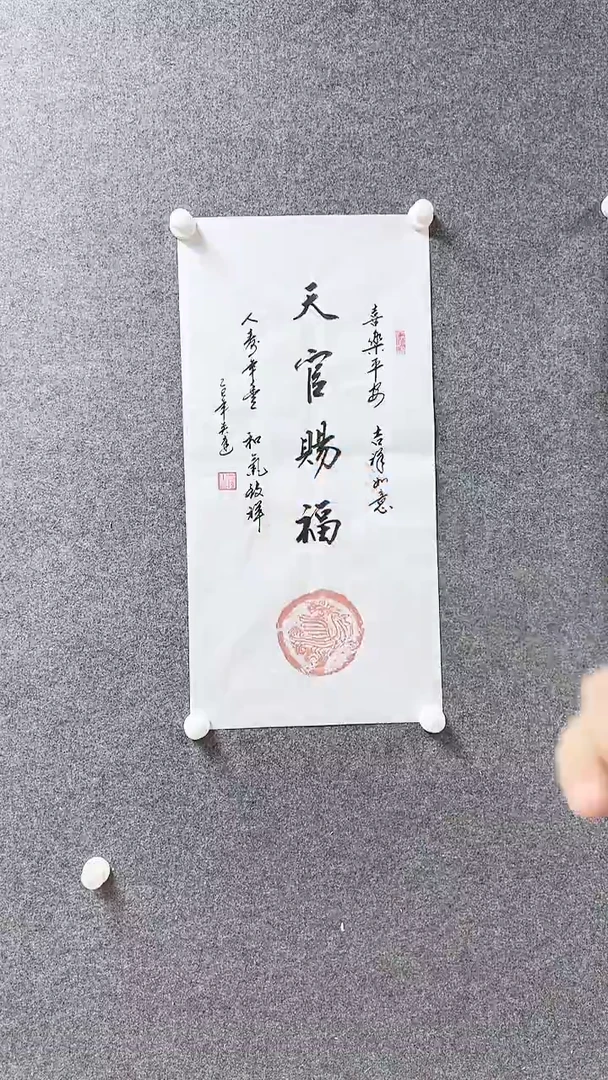 喜樂平安 吉祥如意
天官賜福
人壽年豐 和氣致祥
乙巳年